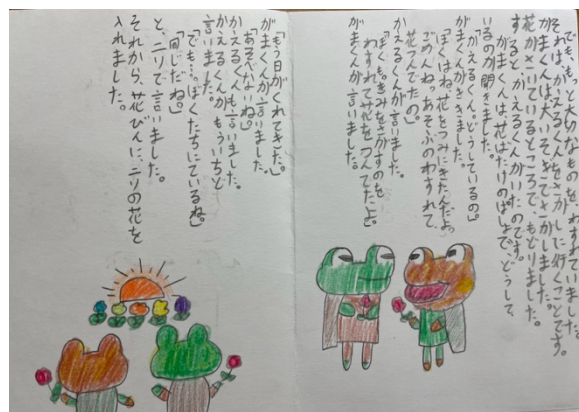 でも、もっと大切なものを、わすれていました。
それは、かえるくんをさがしに行くことです。
がまくんは、大いそぎでさがしました。
花がさいているところまで、もどりました。
すると、かえるくんがいたのです。
がまくんは、花ばたけのばしょで、どうして
いるのか聞きました。
「かえるくん。どうしているの。」
がまくんがききました。
「ぼくはね、花をつみにきたんだよ。
ごめんね。あそぶのわすれて、
花つんでたの。」
かえるくんが言いました。
「ぼくもきみをさがすのを
わすれて花をつんでたよ。」
がまくんが言いました。
「もう日がくれてきた。」
がまくんが言いました。
「あそべないね。」
かえるくんも言いました。
かえるくんが、もういちど
言いました。
「でも…。ぼくたちにているね。」
「同じだね。」
と、二りで言いました。
それから、花びんに、二りの花を
入れました。